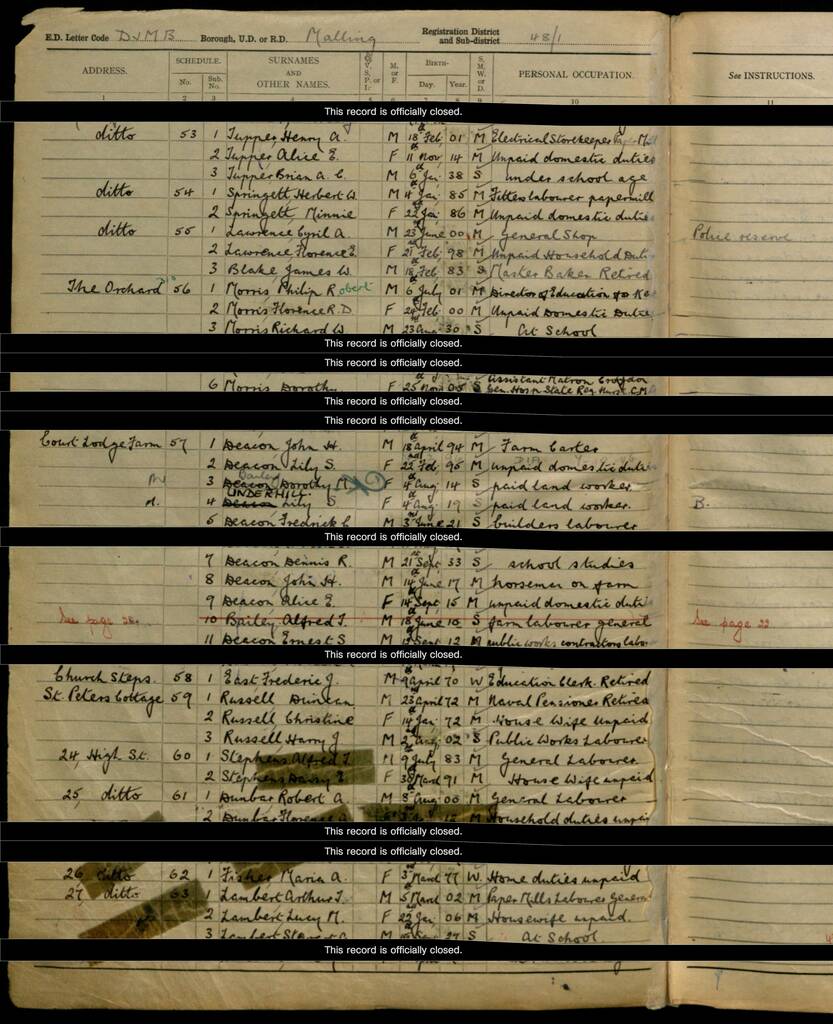 E.D. Letter Code DJMB Borough, U.D. or R.D. Malling Registration District and Sub-district 48/1
ADDRESS. SCHEDULE. SURNAMES AND OTHER NAMES. M. or F. BIRTH— S. M. W. or D. PERSONAL OCCUPATION. See INSTRUCTIONS.
No. Sub. No. Day. Year.
1 2 3 4 5 6 7 8 9 10 11
This record is officially closed.
ditto 53 1 Tupper, Henry A. M 18 Feb 01 M Electrical Storekeeper
2 Tupper Alice E. F 11 Nov 14 M Unpaid domestic duties
3 Tupper Brian A. C. M 6 Jan 38 S under school age
ditto 54 1 Springett Herbert W. M 4 Jan 85 M Fitters labourer papermill
2 Springett Minnie F 22 Jan 86 M Unpaid domestic dutie
ditto 55 1 Lawrence Cyril A. M 23 June 00 M General Shop Police reserve
2 Lawrence Florence E. F 21 Feb 98 M Unpaid Household Duti
3 Blake James W. M 18 Feb 83 S Master Baker Retired
The Orchard 56 1 Morris Philip Robert M 6 July 01 M Director of Education for Ke
2 Morris Florence R. D F 24 Feb 00 M Unpaid Domestic Dutie
3 Morris Richard W M 23 Aug 30 S At School
This record is officially closed.
This record is officially closed.
6 Morris Dorothy F 25 Nov 05 S Assistant Matron Croydon Gen. Hosp State Reg. Nurse C.M.
This record is officially closed.
This record is officially closed.
Court Lodge Farm 57 1 Deacon John H. M 18 April 94 M Farm Carter
2 Deacon Lily S. F 22 Feb 95 M unpaid domestic dutie
3 Deacon Dorothy M F 4 Aug 14 S paid land worker
UNDERHILL.
4 Deacon Lily S F 4 Aug 19 S paid land worker. B.
5 Deacon Fredrick C M 3 June 21 S builders labourer
This record is officially closed.
7 Deacon Dennis R. M 21 Sept 33 S school studies
8 Deacon John H. M 14 June 17 M horseman on farm
9 Deacon Alice E. F 14 Sept 15 M unpaid domestic duti
See page 22 10 Bailey Alfred T. M 18 June 10 S farm labourer general See page 22
11 Deacon Ernest S M Sept 12 M public works contractors labo
This record is officially closed.
Church Steps. 58 1 East Frederic J. M 9 April 70 W Education Clerk. Retired
St. Peters Cottage 59 1 Russell Duncan M 23 April 72 M Naval Pensioner Retired
2 Russell Christine F 14 Jan 72 M House Wife Unpaid
3 Russell Harry J M 2 Aug 02 S Public Works Labourer
24, High St. 60 1 Stephens Alfred T. M 9 July 83 M General Labourer
2 Stephens Daisy E. F 3 March 91 M House Wife unpaid
25, ditto 61 1 Dunbar Robert A. M 8 Aug 00 M General Labourer
2 Dunbar Florence M Household duties unpai
This record is officially closed.
This record is officially closed.
26 ditto 62 1 Fisher Maria A. F 3 March 77 W. Home duties unpaid
27 ditto 63 1 Lambert Arthur T. M 5 March 02 M Paper Mills Labourer General
2 Lambert Lucy M. F 22 Jan 06 M Housewife unpaid.
3 Lambert M 27 S At School
This record is officially closed.